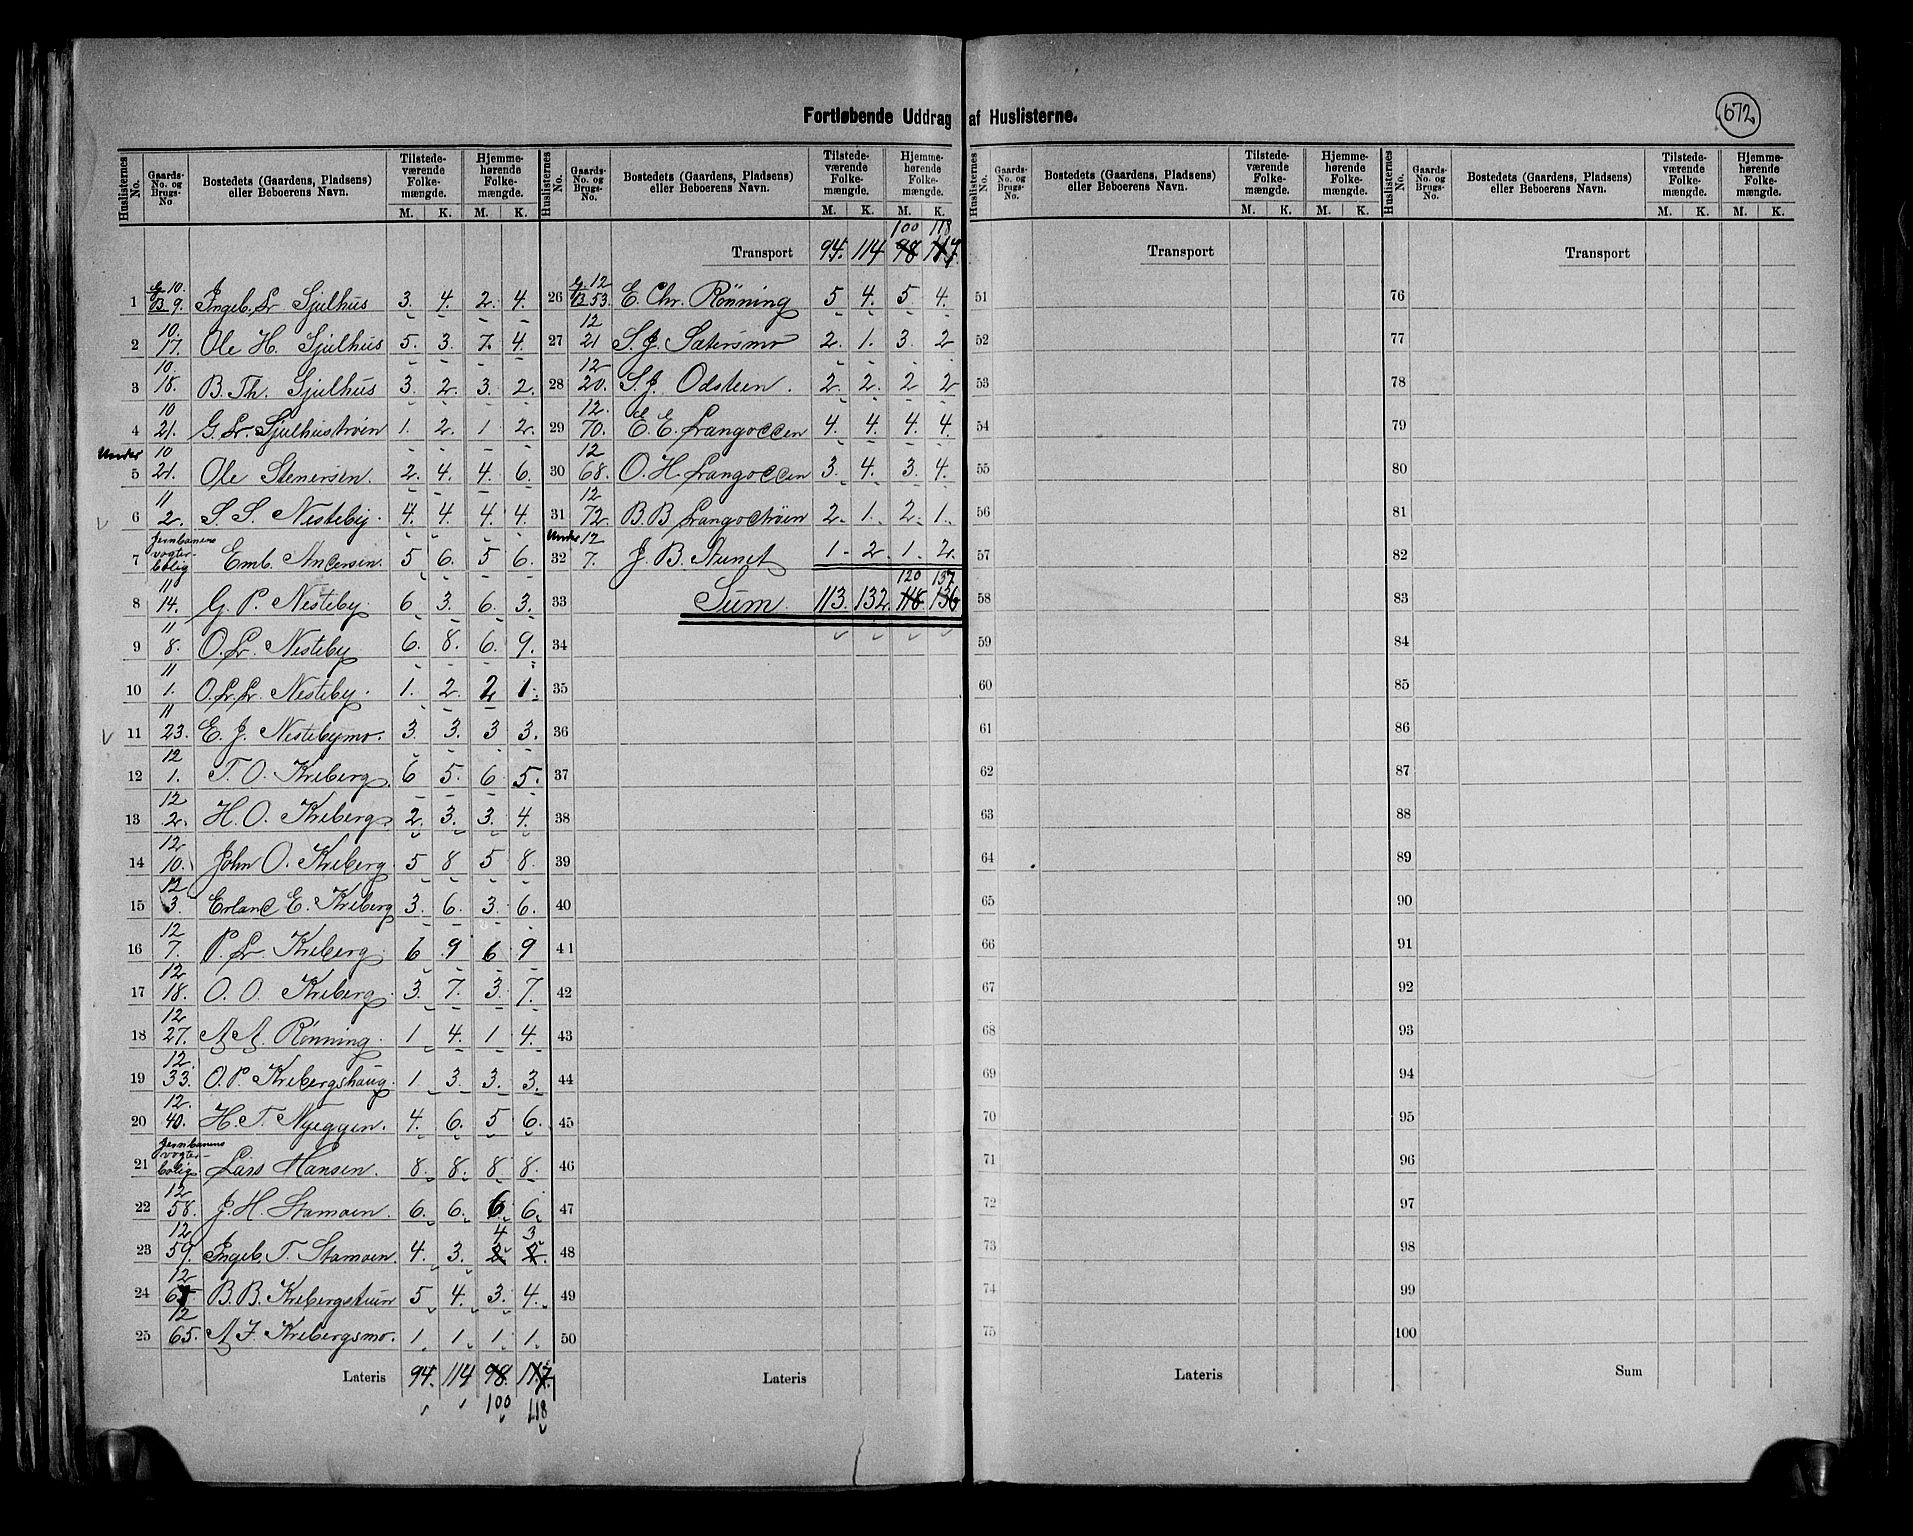 Fortløbende Uddrag af Huslisterne.
672
Huslisternes No. | Gaards-No. og Brugs-No | Bostedets (Gaardens, Pladsens) eller Beboerens Navn. | Tilstedeværende Folkemængde. M. K. | Hjemmehørende Folkemængde. M. K.
1 G 10. B 9. Ingeb. Lr Sjulhus 3. 4. 2. 4.
2 10. 17. Ole H. Sjulhus 5. 3. 7. 4.
3 10. 18. B. Th. Sjulhus 3. 2. 3. 2.
4 10 21. G. Lr. Sjulhustrøen 1. 2. 1 2.
Under
5 10 21. Ole Stenersen. 2. 4. 4. 6.
6 11 2. S. S. Nesteby. 4. 4. 4. 4.
7 Jernbanens vogter-bolig Emb. Andersen 5 6. 5 6.
8 11 14. G. P. Nesteby. 6. 3. 6. 3.
9 11 8. O. Lr. Nesteby 6. 8. 6. 9.
10 11 1. O. Lr. Lr. Nesteby. 1. 2. 2 1.
11 11 23. E. J. Nestebymo. 3. 3. 3 3.
12 12 1. T. O. Kreberg. 6 5. 6 5.
13 12 2. H. O. Kreberg. 2. 3. 3. 4.
14 12 10. John O. Kreberg. 5 8 5 8.
15 12 3. Erland E. Kreberg 3. 6. 3. 6.
16 12 7. P. Lr Kreberg. 6 9 6 9
17 12 18. O. O. Kreberg. 3. 7. 3. 7.
18 12 27. A. A. Rønning. 1 4. 1 4.
19 12. 33. O. P. Krebergshaug. 1. 3. 3. 3.
20 12. 40. H. T. Nyeggen. 4. 6. 5 6.
21 Jernbanens vogter-bolig Lars Hansen. 8. 8. 8. 8.
22 12 58. J. H. Stamoen. 6. 6. 6 6.
4 3
23 12 59. Ingeb. T. Stamoen. 4. 3. 2 2.
24 12 B. B. Krebergstuen 5 4. 3. 4.
25 12 65. A. J. Krebergsmo. 1. 1. 1. 1.
Lateris 94. 114 98. 117.
100 118
Huslisternes No. | Gaards-No. og Brugs-No. | Bostedets (Gaardens, Pladsens) eller Beboerens Navn. | Tilstedeværende Folkemængde. M. K. | Hjemmehørende Folkemængde. M. K.
100 118
Transport 94. 114 98 117.
26 G 12 B 53. E. Chr. Rønning 5 4. 5. 4.
27 12 21 S. J. Sætersmo 2. 1. 3. 2
28 12 20. S. J. Odsteen. 2 2. 2 2
29 12. 70. E. E. Langodden 4. 4. 4. 4.
30 12 68. O. H. Langodden 3. 4. 3. 4.
31 12 72. B. B Langodtrøen 2. 1. 2. 1.
Under
32 12 7. J. B. Stunet 1. 2. 1. 2.
120 137
33 Sum. 113. 132 118 136
34
35
36
37
38
39
40
41
42
43
44
45
46
47
48
49
50
Lateris
Huslisternes No. | Gaards-No. og Brugs-No. | Bostedets (Gaardens, Pladsens) eller Beboerens Navn. | Tilstedeværende Folkemængde. M. K. | Hjemmehørende Folkemængde. M. K.
Transport
51
52
53
54
55
56
57
58
59
60
61
62
63
64
65
66
67
68
69
70
71
72
73
74
75
Lateris
Huslisternes No. | Gaards-No. og Brugs-No. | Bostedets (Gaardens, Pladsens) eller Beboerens Navn. | Tilstedeværende Folkemængde. M. K. | Hjemmehørende Folkemængde. M. K.
Transport
76
77
78
79
80
81
82
83
84
85
86
87
88
89
90
91
92
93
94
95
96
97
98
99
100
Sum